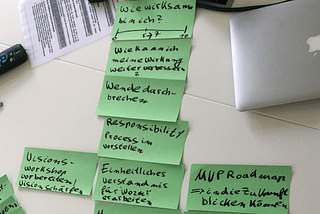 Wie wirksam
bin ich?
Wie kann ich
meine Wirkung
weiter verbessern
?
Wende durch-
brechen
Responsibility
Process im
vorstellen
Visions-
workshop
vorbereiten/
Vision schärfen
Einheitliches
Verständnis
für Wozu?
erarbeiten
MVP Roadmap
=> in die Zukunft
blicken können